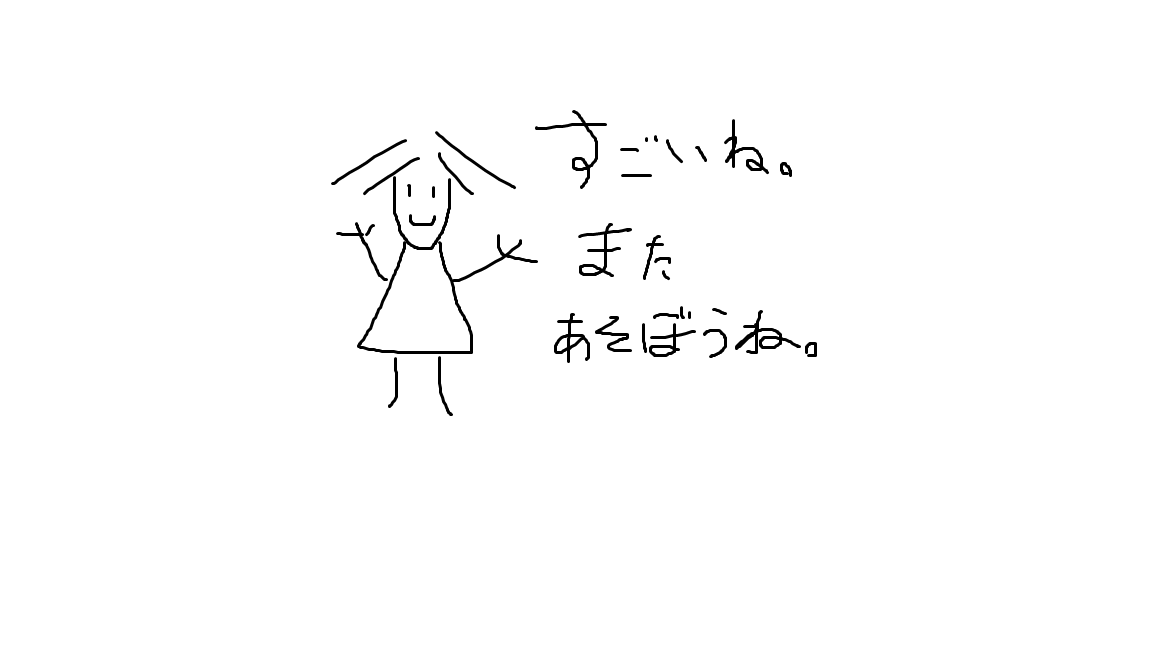 すごいね。
また
あそぼうね。